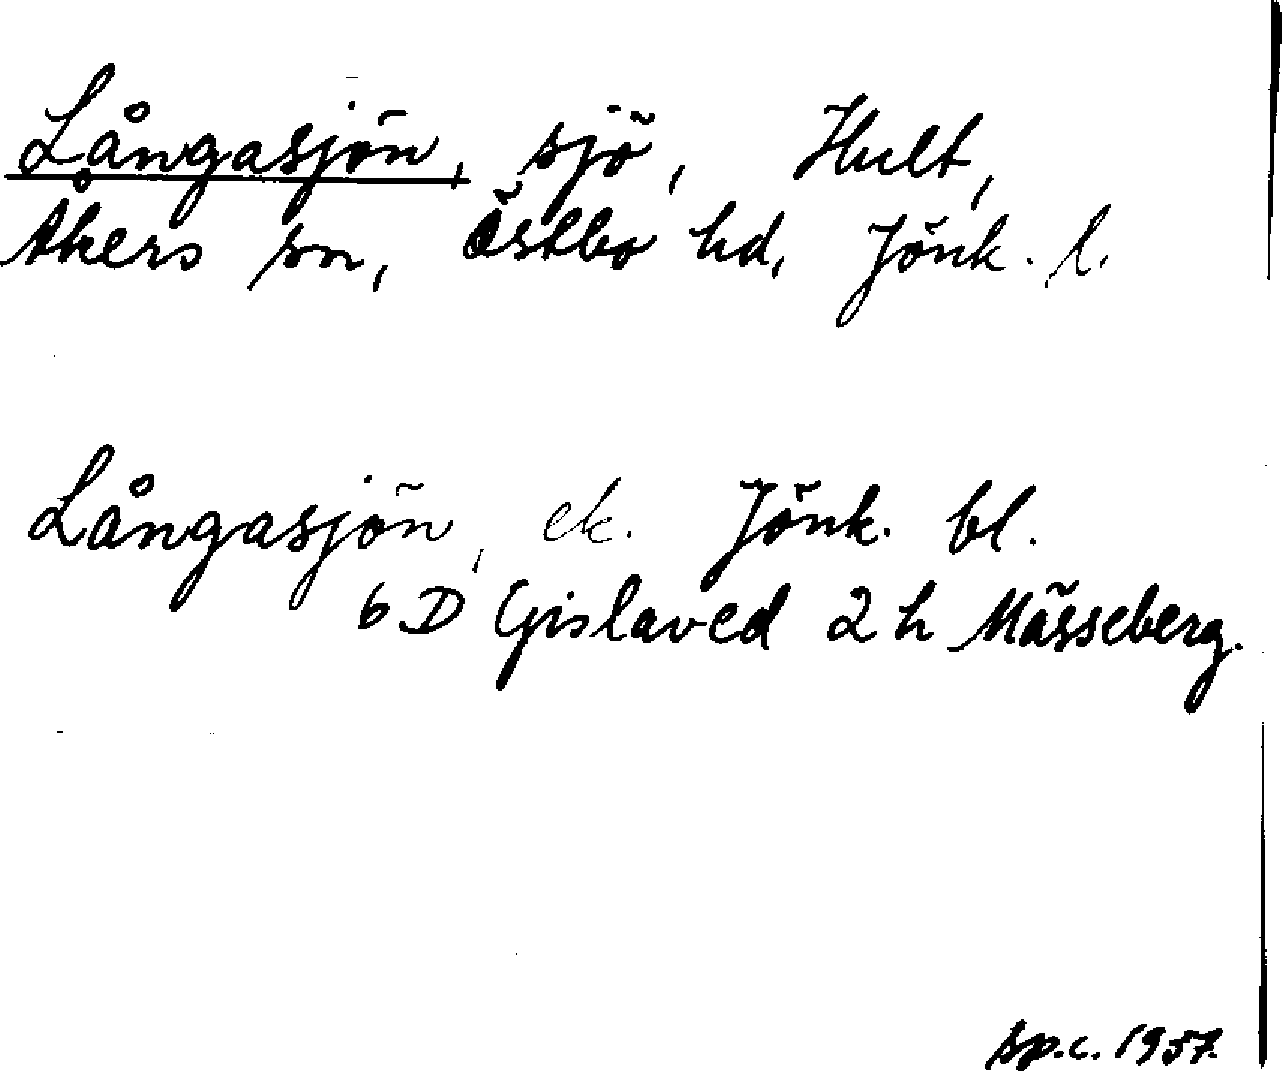 Långasjön, sjö, Hult,
Åkers sn, Östbo hd, Jönk. l.
Långasjön, ek. Jönk. bl.
6 D Gislaved 2 h Mässeberg.
sp.c. 1957.